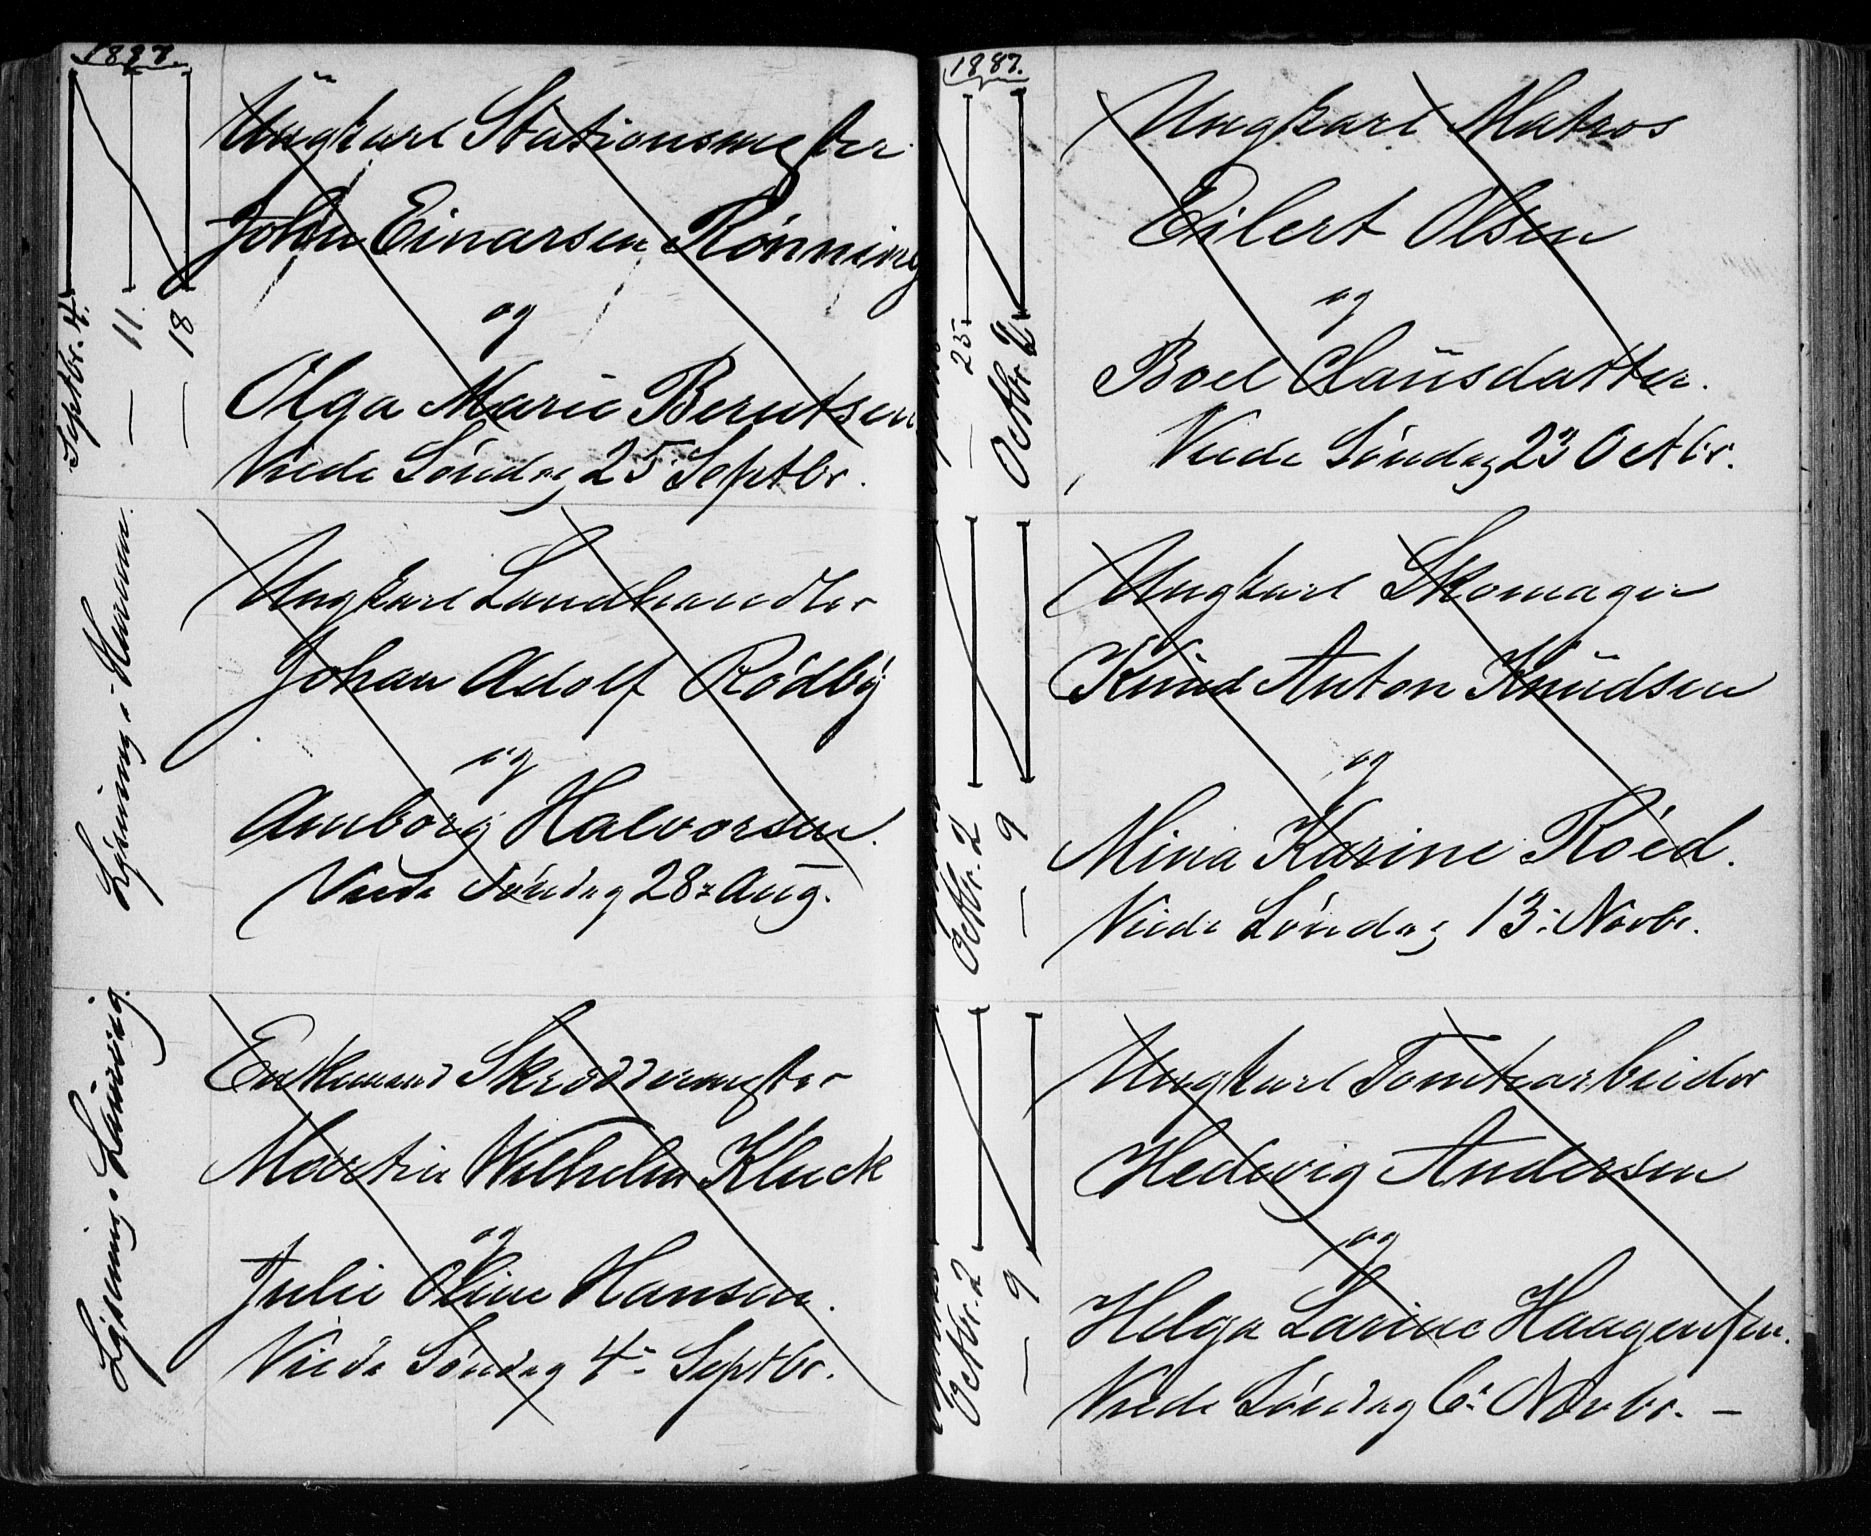 1887.
Septbr. 4.
— 11.
— 18
Ungkarl Stationsmester
John Einarsen Rønning
og
Olga Marie Berntsen
Viede Søndag 25 Septbr.
Lysning i
Ungkarl Landhandler
Johan Adolf Rødby
og
Amborg Halvorsen.
Viede Søndag 28 Aug.
Lysning i Laurvig.
Enkemand Skræddermester
Martin Wilhelm Kluck
og
Julie Oline Hansen.
Viede Søndag 4 Septbr.
1887.
— 25
Octbr. 2
Ungkarl Matros
Eilert Olsen
og
Boel Clausdatter.
Viede Søndag 23 Octbr.
Octbr. 2
— 9
Ungkarl Skomager
Knud Anton Knudsen
og
Mina Karine Röed.
Viede Søndag 13. Novbr.
Octbr. 2
— 9
Ungkarl Tomtearbeider
Hedevig Andersen
og
Helga Larine Haagensen.
Viede Søndag 6. Novbr. —